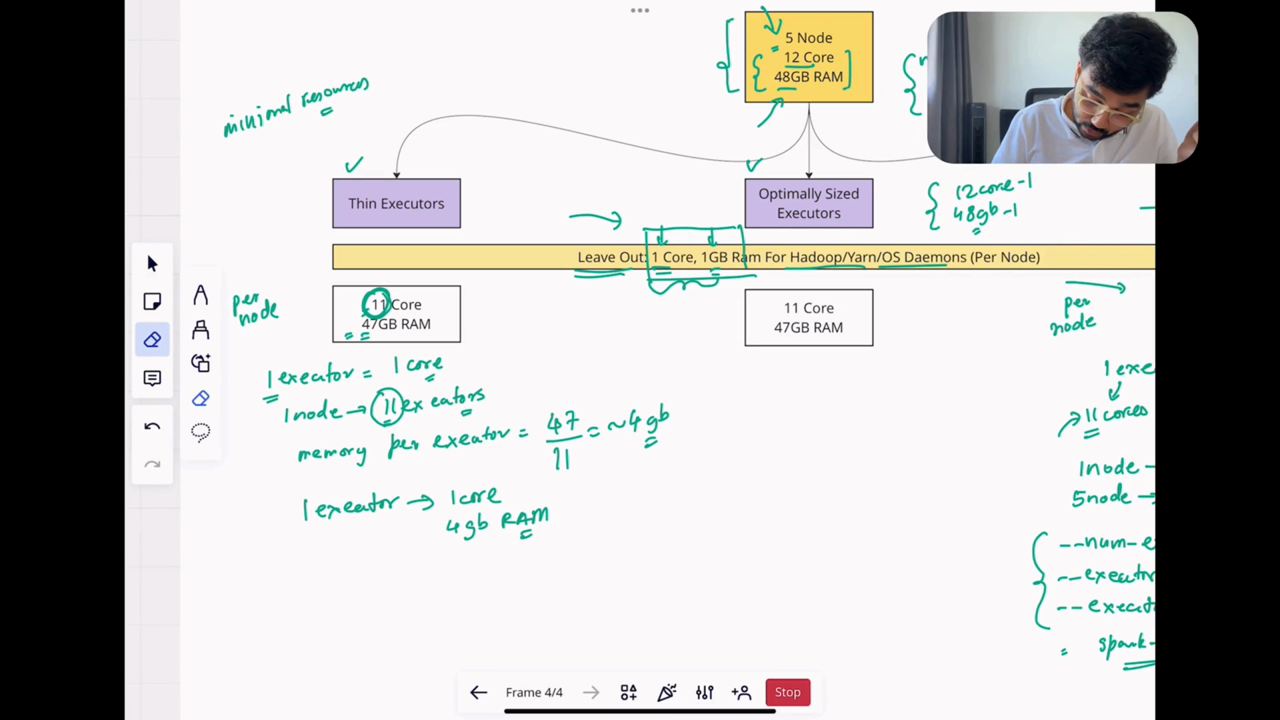 5 Node
12 Core
48GB RAM
minimal resources
Thin Executors
Optimally Sized
Executors
12core-1
48gb-1
Leave Out: 1 Core, 1GB Ram For Hadoop/Yarn/OS Daemons (Per Node)
per
node
11 Core
47GB RAM
11 Core
47GB RAM
per
node
1 executor = 1 core
1node → 11 executors
memory per executor = 47/11 = ~4gb
1 executor → 1core
4gb RAM
1 exe
11 cores
1node -
5node →
--num-e
--executor
--execut
= spark-
Frame 4/4
Stop